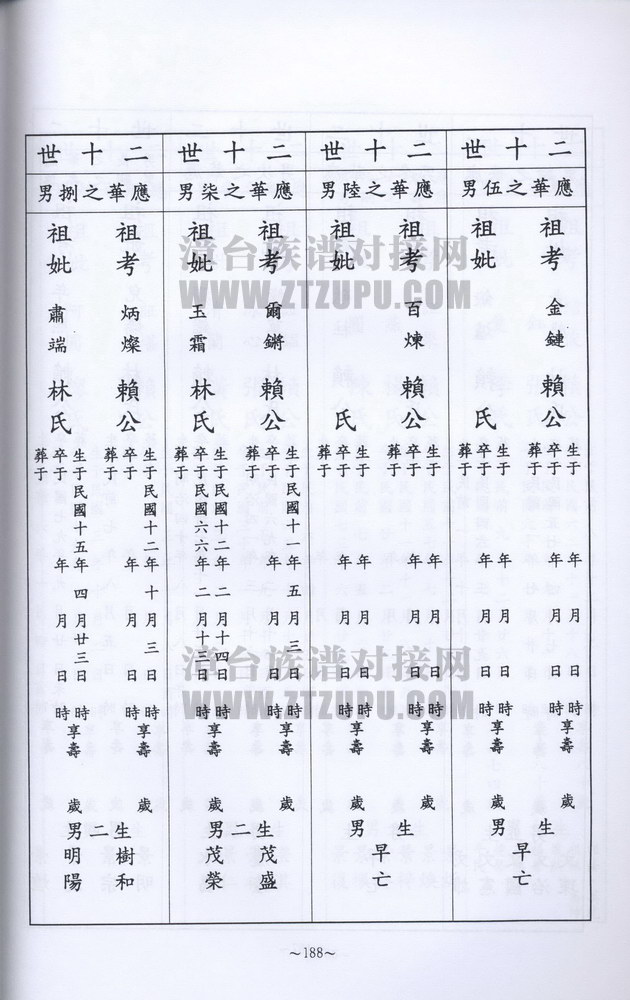 二十世
應華之伍男
祖考 金鏈 賴公
生于 年 月 日 時
卒于 年 月 日 時享壽 歲
葬于
祖妣 氏
生于 年 月 日 時
卒于 年 月 日 時享壽 歲
葬于
生男
早亡
二十世
應華之陸男
祖考 百煉 賴公
生于 年 月 日 時
卒于 年 月 日 時享壽 歲
葬于
祖妣 氏
生于 年 月 日 時
卒于 年 月 日 時享壽 歲
葬于
生男
早亡
二十世
應華之柒男
祖考 爾鏘 賴公
生于民國十一年五月三日 時
卒于 年 月 日 時享壽 歲
葬于
祖妣 玉霜 林氏
生于民國十二年二月十四日 時
卒于民國六六年二月十三日 時享壽 歲
葬于
生二男
茂盛
茂榮
二十世
應華之捌男
祖考 炳燦 賴公
生于民國十二年十月三日 時
卒于 年 月 日 時享壽 歲
葬于
祖妣 肅端 林氏
生于民國十五年四月廿三日 時
卒于 年 月 日 時享壽 歲
葬于
生二男
樹和
明陽
~188~
漳台族谱对接网
WWW.ZTZUPU.COM
漳台族谱对接网
WWW.ZTZUPU.COM